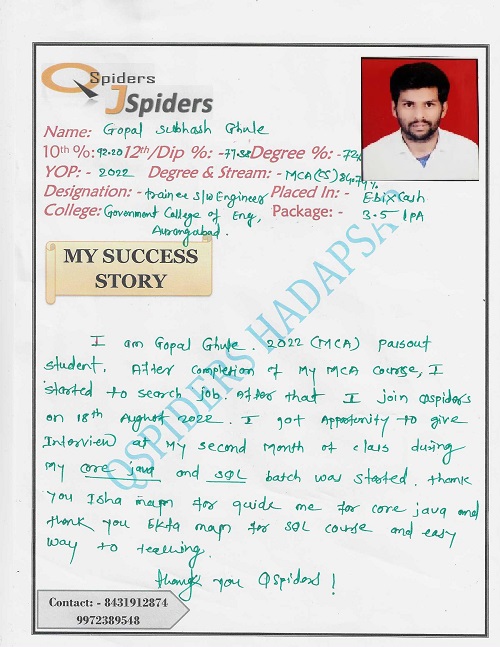 QSpiders
JSpiders
Name: Gopal Subhash Ghule
10th %: 92.20 12th/Dip %: -77.38 Degree %: -72.
YOP: - 2022 Degree & Stream: - MCA 84.79%
Designation: - trainee S/W Engineer Placed In: - EbixCash
College: Government College of Eng, Package: - 3.5 LPA
Aurangabad.
MY SUCCESS
STORY
QSPIDERS HADAPSA
I am Gopal Ghule. 2022 (MCA) passout
student. After completion of My MCA Course, I
started to search job. After that I join Qspiders
on 18th August 2022. I got Appotunity to give
Interview at My second Month of class during
My core java and SQL batch was started. thank
you Isha mam for guide me for core java and
thank you Ekta mam for SQL course and easy
way to teaching.
thank you Qspiders!
Contact: - 8431912874
9972389548